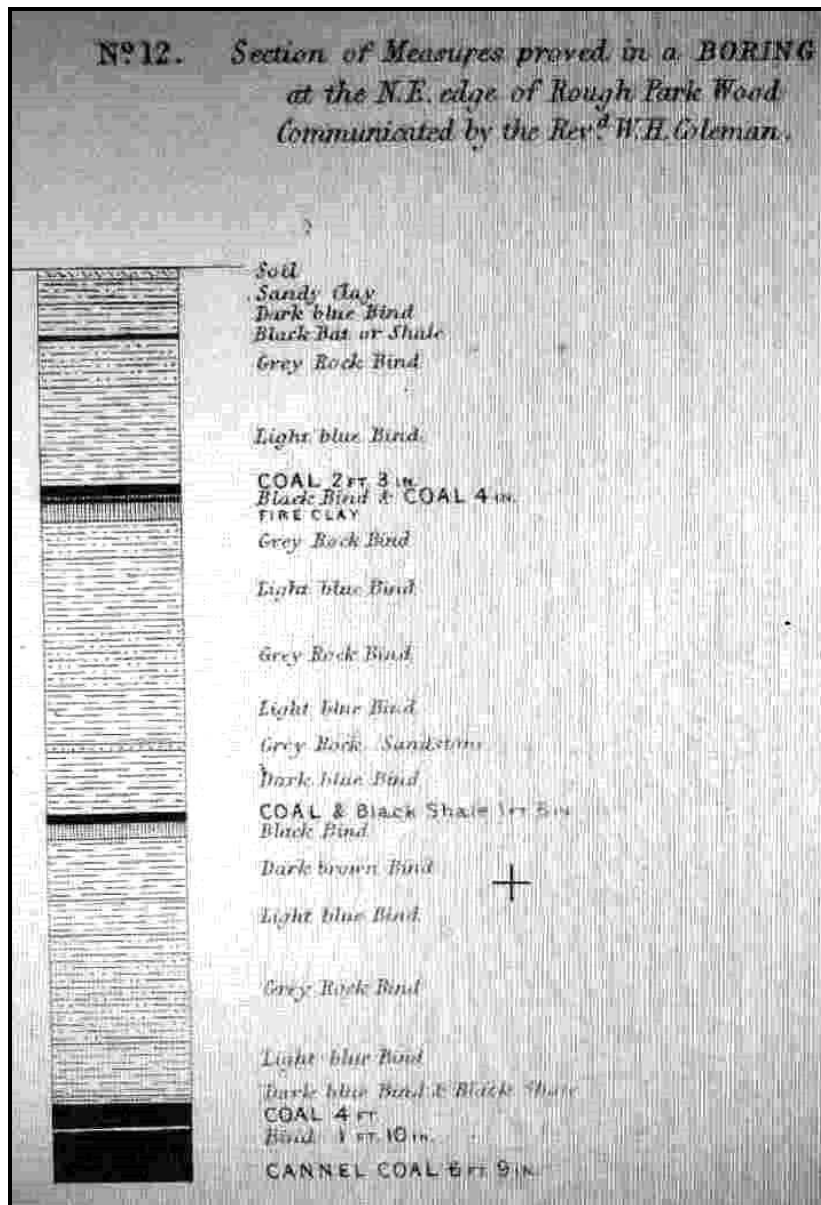 Nº 12. Section of Measures proved in a BORING
at the N.E. edge of Rough Park Wood
Communicated by the Revᵈ. W.H. Coleman.
Soil
Sandy Clay
Dark blue Bind
Black Bat or Shale
Grey Rock Bind
Light blue Bind
COAL 2 FT. 3 IN.
Black Bind & COAL 4 IN.
FIRE CLAY
Grey Rock Bind
Light blue Bind
Grey Rock Bind
Light blue Bind
Grey Rock Sandstone
Dark blue Bind
COAL & Black Shale 1 FT IN
Black Bind
Dark brown Bind
Light blue Bind
Grey Rock Bind
Light blue Bind
Dark blue Bind & Black Shale
COAL 4 FT.
Bind 1 FT. 10 IN.
CANNEL COAL 6 FT 9 IN.